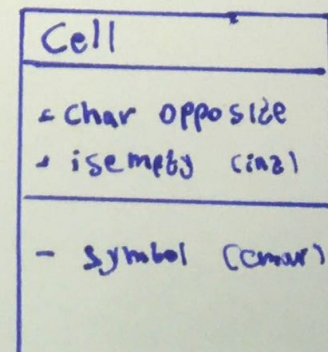 Cell
- char opposite
- isempty (int)
- symbol (char)